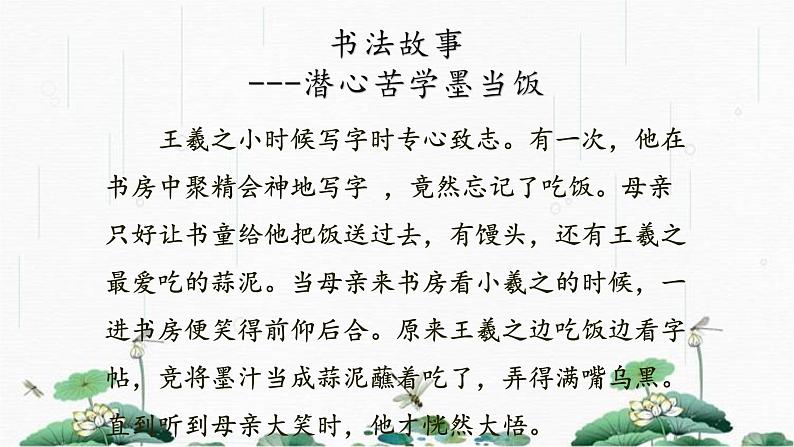 书法故事
---潜心苦学墨当饭
王羲之小时候写字时专心致志。有一次，他在
书房中聚精会神地写字 ，竟然忘记了吃饭。母亲
只好让书童给他把饭送过去，有馒头，还有王羲之
最爱吃的蒜泥。当母亲来书房看小羲之的时候，一
进书房便笑得前仰后合。原来王羲之边吃饭边看字
帖，竞将墨汁当成蒜泥蘸着吃了，弄得满嘴乌黑。
直到听到母亲大笑时，他才恍然大悟。